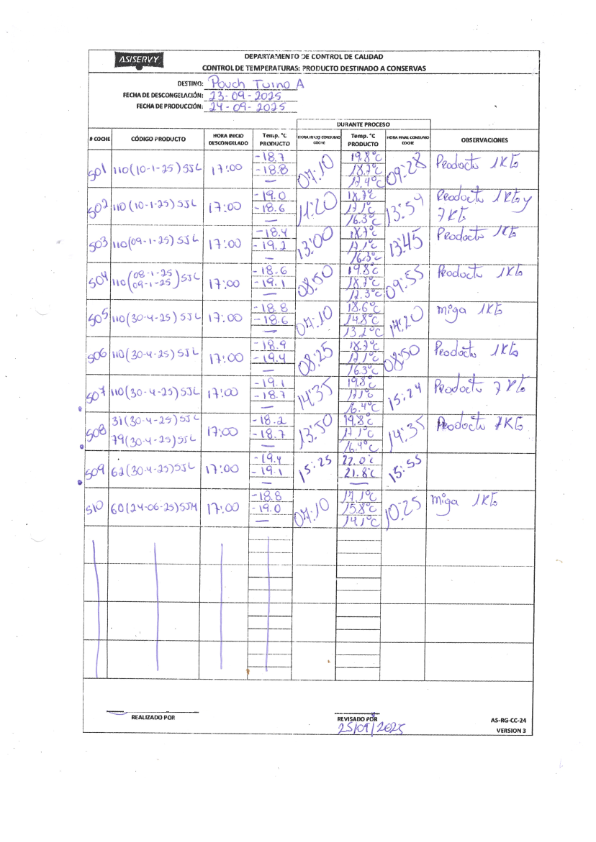 ASISERVY
DEPARTAMENTO DE CONTROL DE CALIDAD
CONTROL DE TEMPERATURAS: PRODUCTO DESTINADO A CONSERVAS
DESTINO: Pouch Tuino A
FECHA DE DESCONGELACIÓN: 23-09-2025
FECHA DE PRODUCCIÓN: 24-09-2025
DURANTE PROCESO
# COCHE CÓDIGO PRODUCTO HORA INICIO DESCONGELADO Temp. °C PRODUCTO HORA INICIO CONSUMO COCHE Temp. °C PRODUCTO HORA FINAL CONSUMO COCHE OBSERVACIONES
501 110(10-1-25)SJL 17:00 -18.7 -18.8 — 07:10 19.8°C 18.7°C 17.4°C 09:28 Producto 1Kto
502 110(10-1-25)SJL 17:00 -19.0 -18.6 — 11:20 18.7°C 17.1°C 16.3°C 13:54 Producto 1Kto y 7Kto
503 110(09-1-25)SJL 17:00 -18.4 -19.2 — 13:00 18.7°C 17.1°C 16.3°C 13:45 Producto 1Kto
504 110(08-1-25 09-1-25)SJL 17:00 -18.6 -19.1 — 08:50 19.8°C 18.7°C 17.3°C 09:55 Producto 1Kto
505 110(30-4-25)SJL 17:00 -18.8 -18.6 — 07:10 18.6°C 14.8°C 13.2°C 14:20 miga 1Kto
506 110(30-4-25)SJL 17:00 -18.9 -19.4 — 08:25 18.7°C 17.1°C 16.3°C 08:50 Producto 1Kto
507 110(30-4-25)SJL 17:00 -19.1 -18.7 — 14:35 19.8°C 17.1°C 16.4°C 15:24 Producto 7Kto
508 31(30-4-25)SJL 79(30-4-25)SJL 17:00 -18.2 -18.7 — 13:50 19.8°C 17.1°C 16.4°C 14:35 Producto 7Kto
509 62(30-4-25)SJL 17:00 -19.4 -19.1 — 15:25 22.0°C 21.8°C — 15:55
510 60(24-06-25)SJM 17:00 -18.8 -19.0 — 07:10 17.1°C 15.8°C 14.1°C 10:25 miga 1Kto
REALIZADO POR
REVISADO POR
25/09/2025
AS-RG-CC-24
VERSION 3